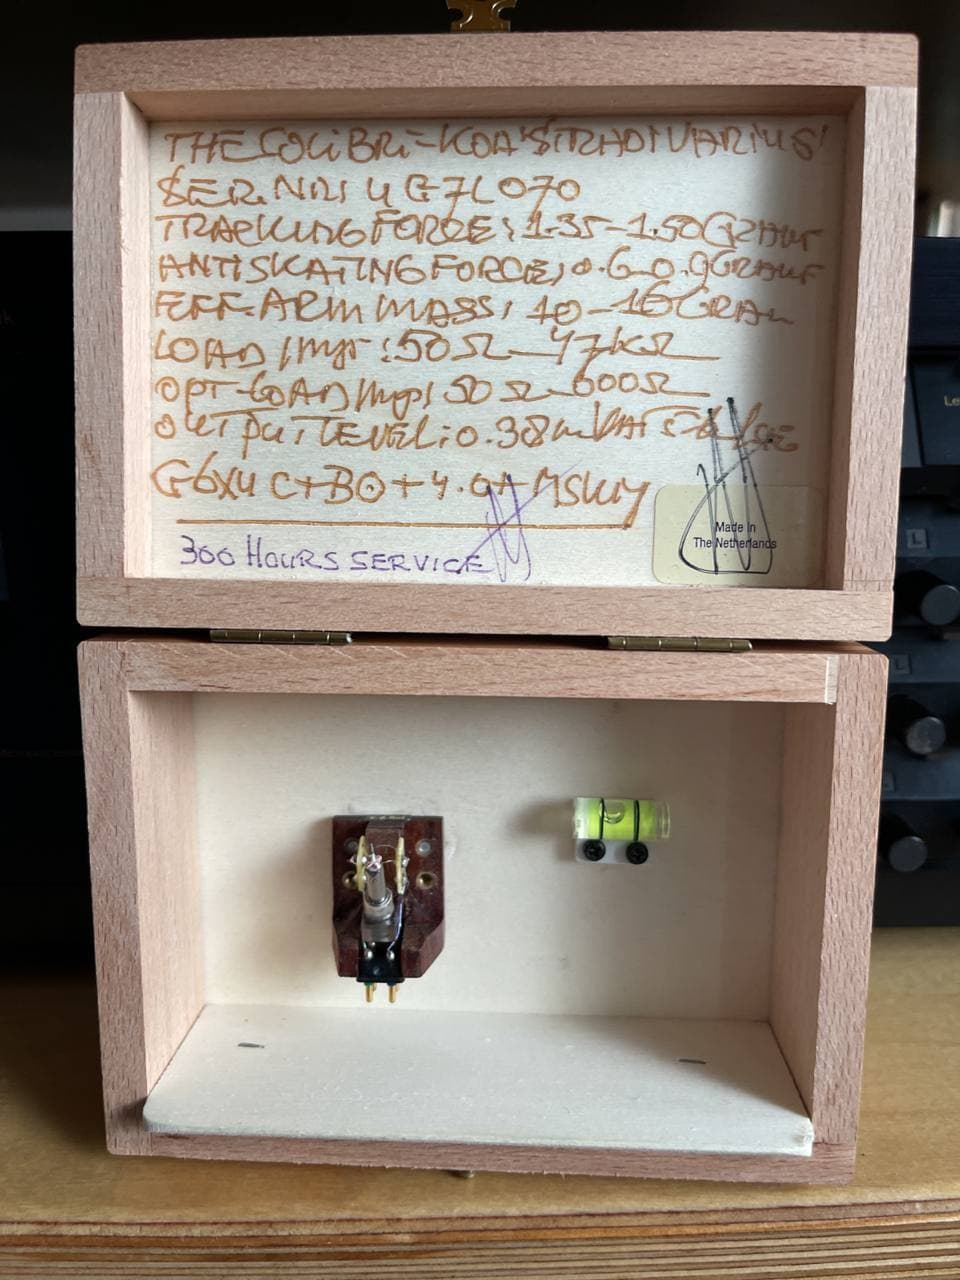 THE COLIBRI-KOA 'STRADIVARIUS'
SER.NR:
TRACKING FORCE: 1.35-1.50GRAM
ANTISKATING FORCE: 0.6-0.9GRAM
EFF. ARM MASS: 10-16GRAM
LOAD IMP: 50Ω-47KΩ
OPT-LOAD IMP: 50Ω-600Ω
OUTPUT LEVEL: 0.38mV
300 HOURS SERVICE
Made In
The Netherlands
Le
L
L